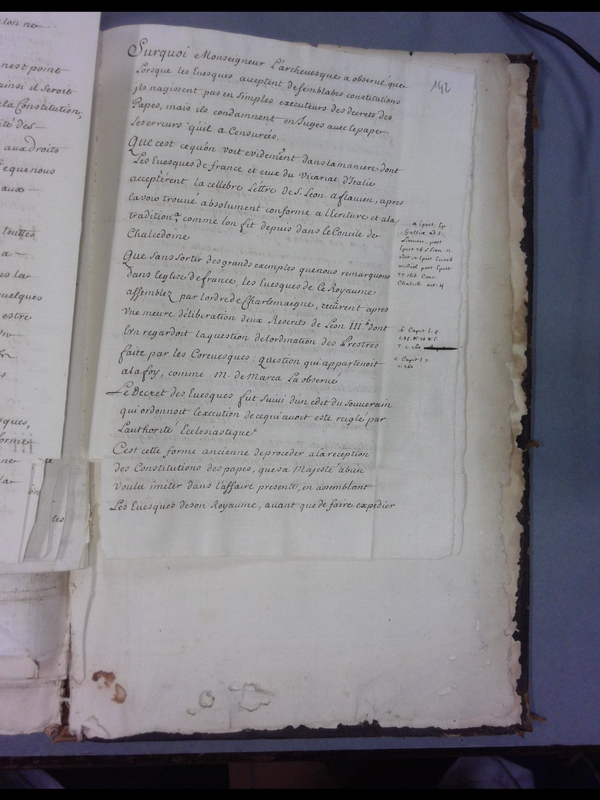 lon ne
nest point
ainsi il seroit
la Constitution,
ité des
aux droits
requenous
aux
toutes
a
es la
quelques
estre
ques,
forme
ne
la
les
142
Surquoi Monseigneur L'archevesque a observé que
Lorsque les Euesques acceptent de semblables constitutions
jls nagissent pas en simples executeurs des decrets des
Papes, mais ils condamnent en Juges avec le pape
les erreurs quil a Censurées.
Que cest ce qu'on voit evidem̃ent dans la maniere dont
Les Euesques de france et ceux du Vicariat d'Italie
accepterent la cellebre Lettre de S. Leon a flavien, apres
lavoir trouué absolument conforme a l'ecriture et a la
tradition a comme lon fit depuis dans le Concile de
Chalcedoine
Que sans sortir des grands exemples que nous remarquons
dans l'eglise de france, les Euesques de Ce Royaume
assemblez par l'ordre de Charlemaigne, receurent apres
vne meure déliberation deux Rescrits de Leon III. b dont
lvn regardoit la question de l'ordination des Prestres
faite par les Corevesques, question qui appartenoit
a la foy, comme M. de Marca La observé
Le Decret des Euesques fut suivi d'un edit du souuerain
qui ordonnoit l'execution de ce qui auoit esté reiglé par
Lauthorité Ecclesiastique c
C'est cette forme ancienne de proceder a la reception
des Constitutions des papes, que sa Majesté a bien
voulu imiter dans l'affaire presente, en assemblant
Les Euesques de son Royaume, auant que de faire expedier
a Epist. Ep.
Galliæ ad S.
Leonem, post
Epist. 76 S. Leon n.
edit.
mediol. post Epist.
77 ibid. Conc.
Chalced. act. 4
b Capit. l. 6
c Capit. l. 7